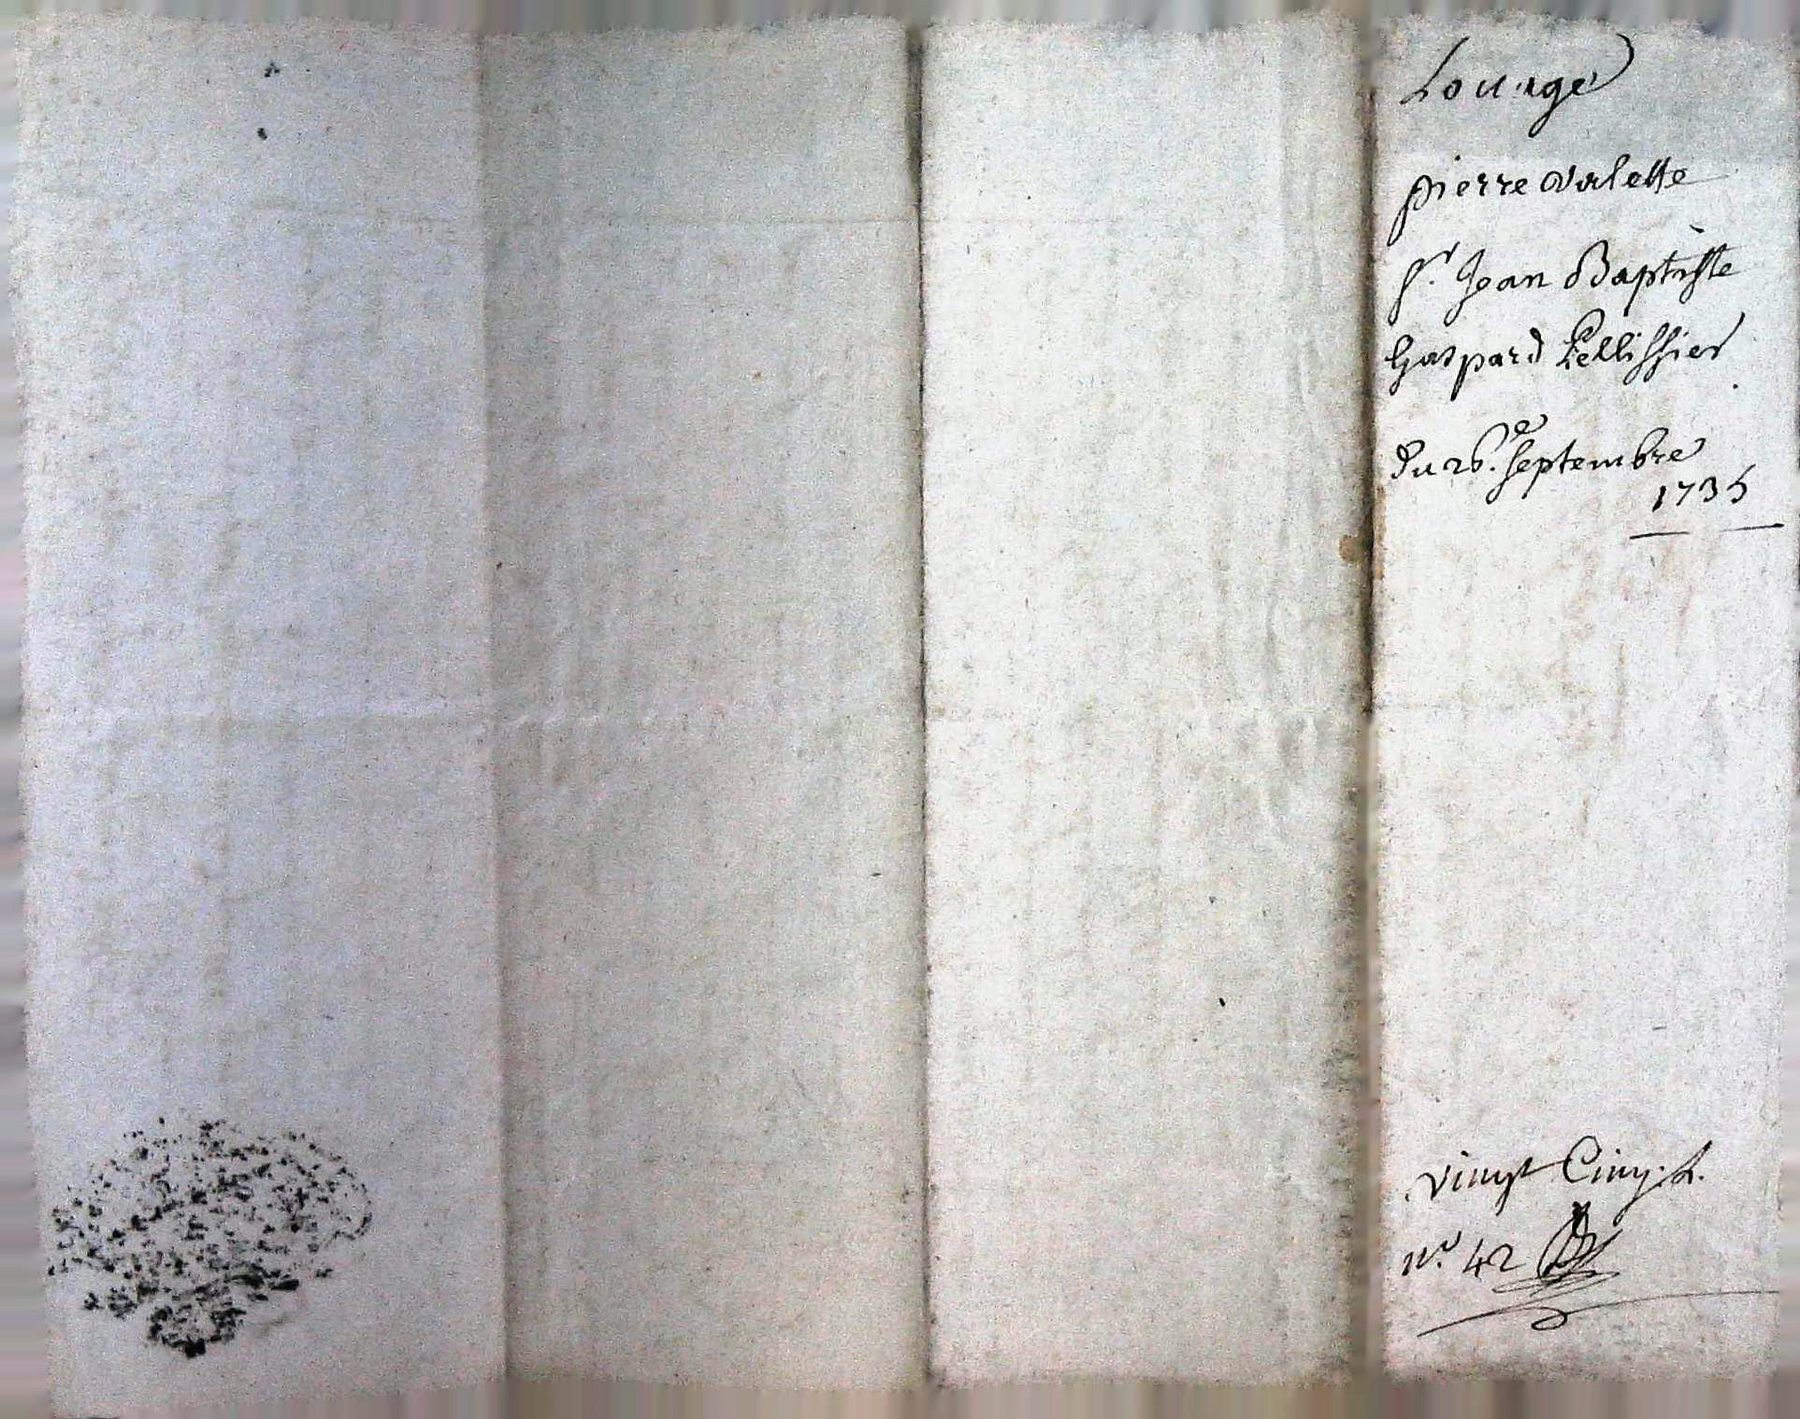 Louage
pierre valette
Sr. Jean Baptiste
Gaspard Pellissier
Du 26.e septembre
1735
vingt Cinq L.
No. 42